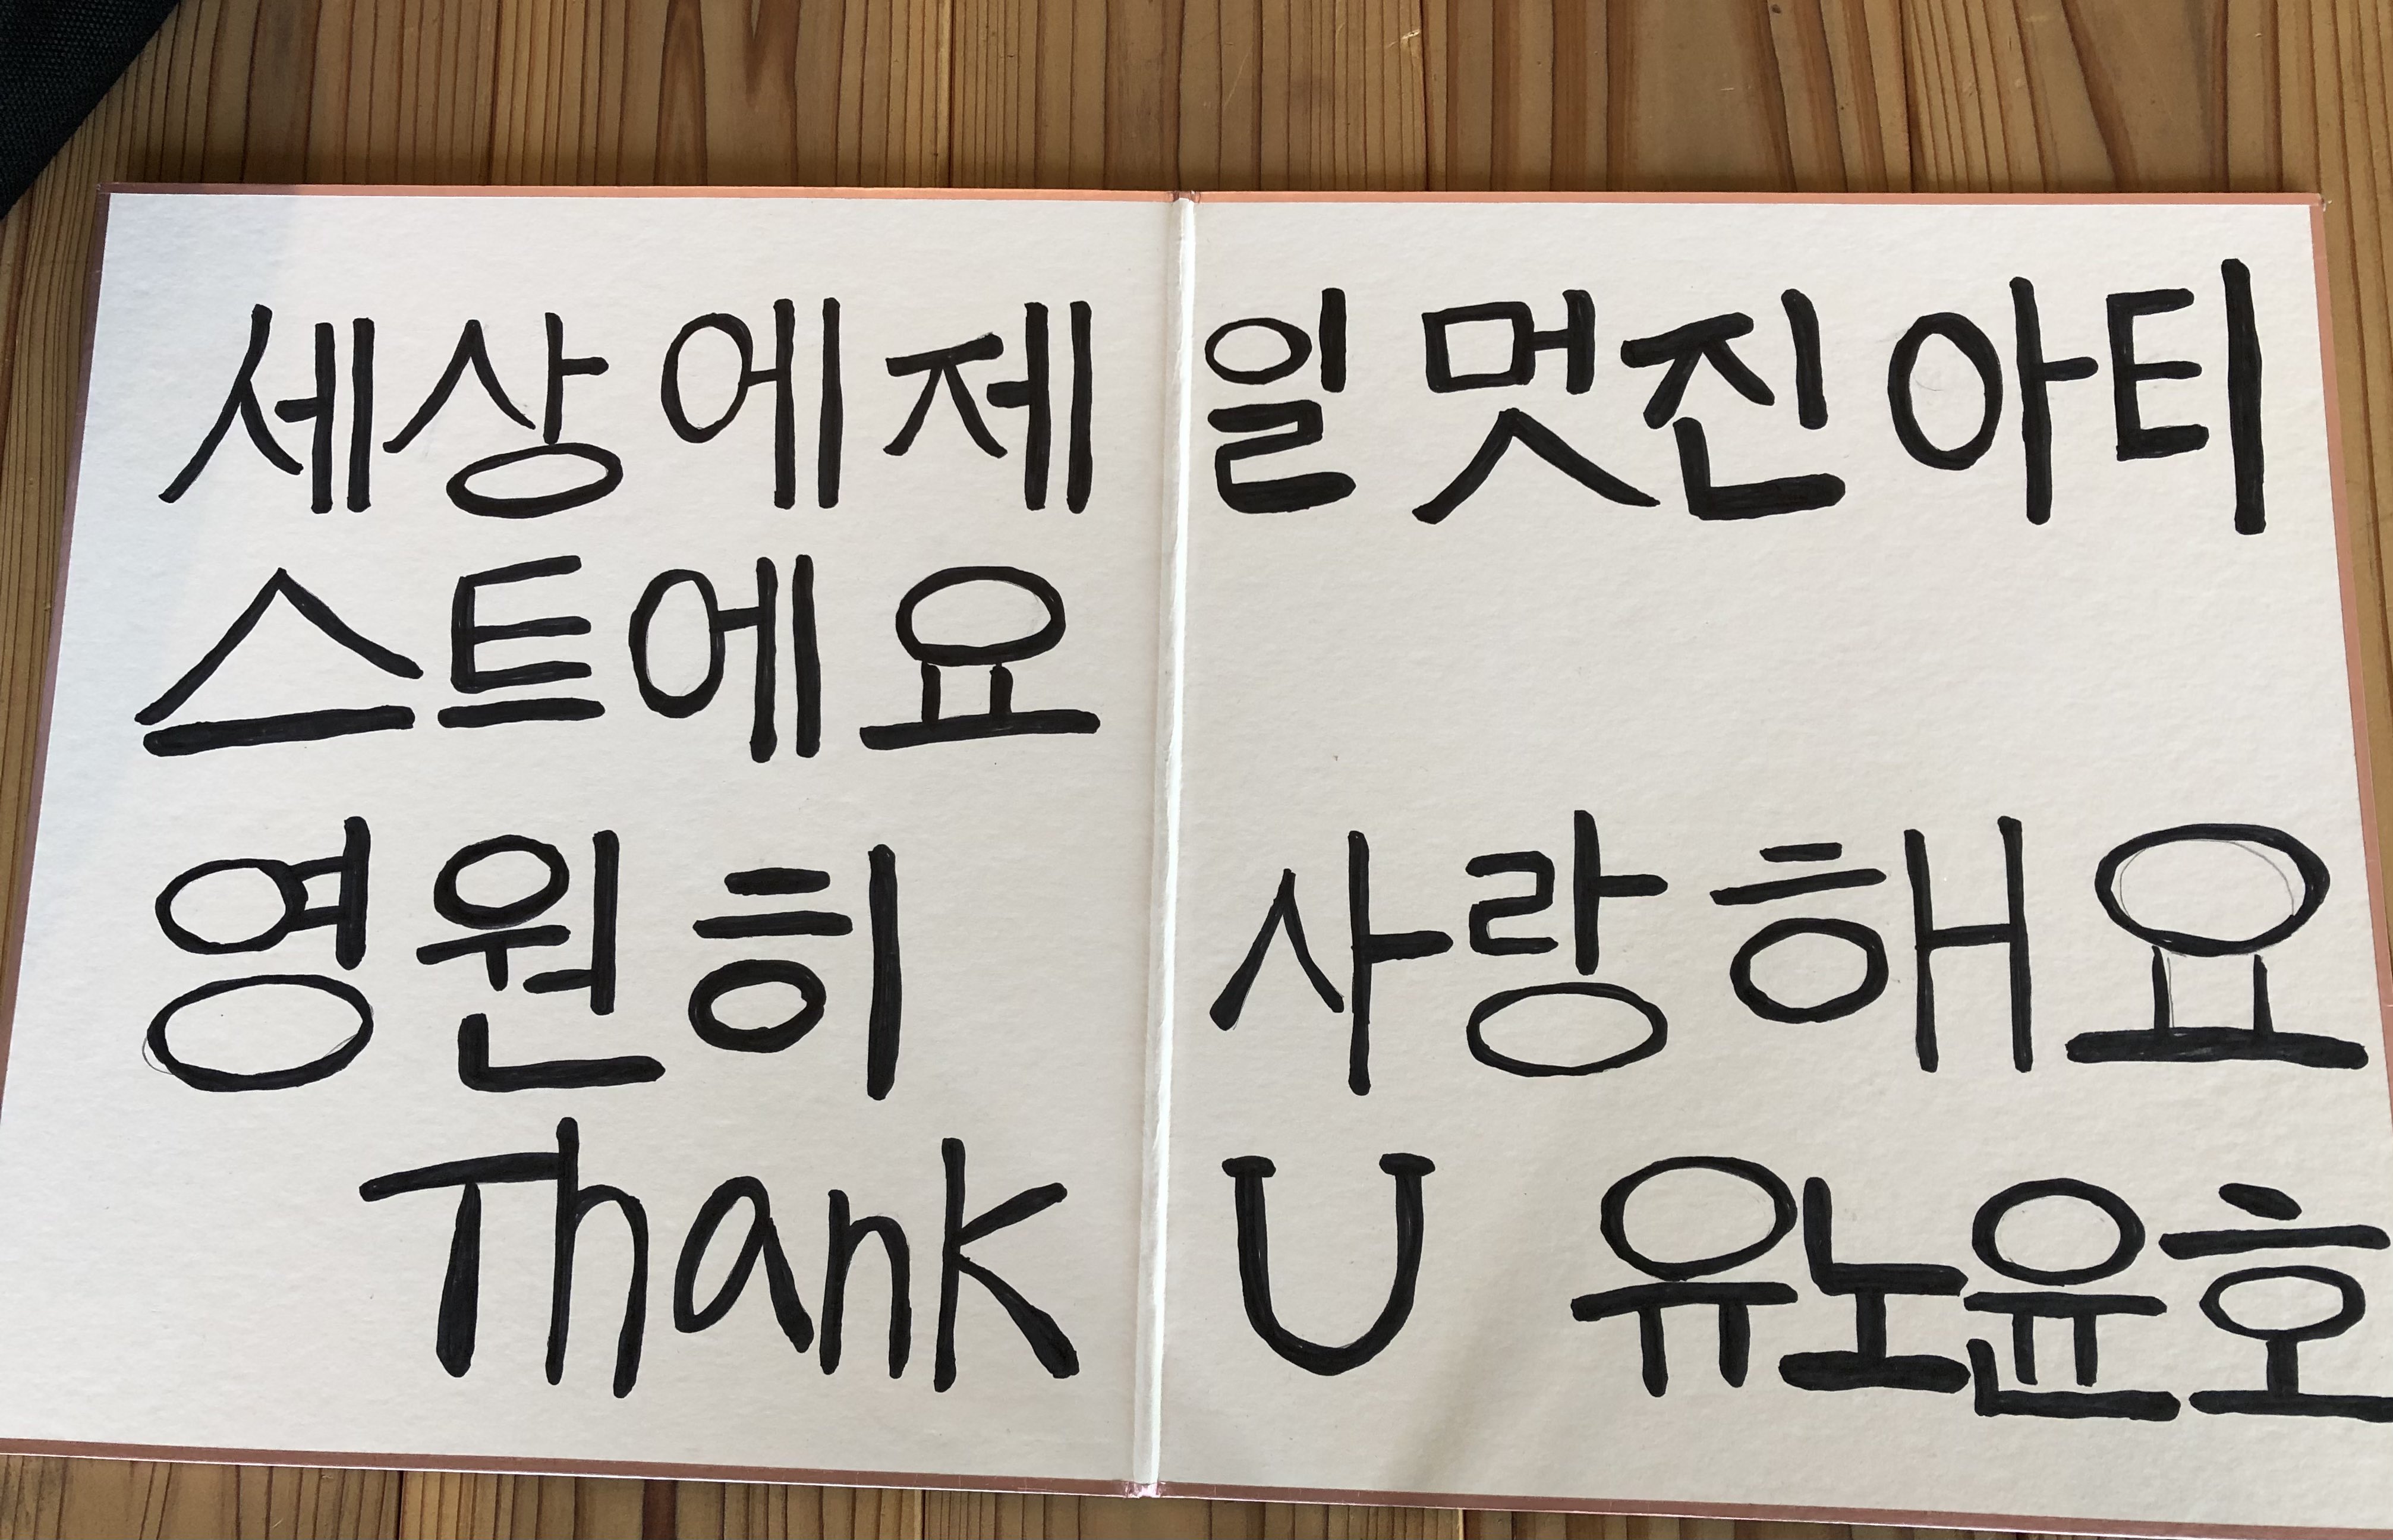 세상에제일 멋진 아티
스트에요
영원히 사랑해요
Thank U 유노윤호